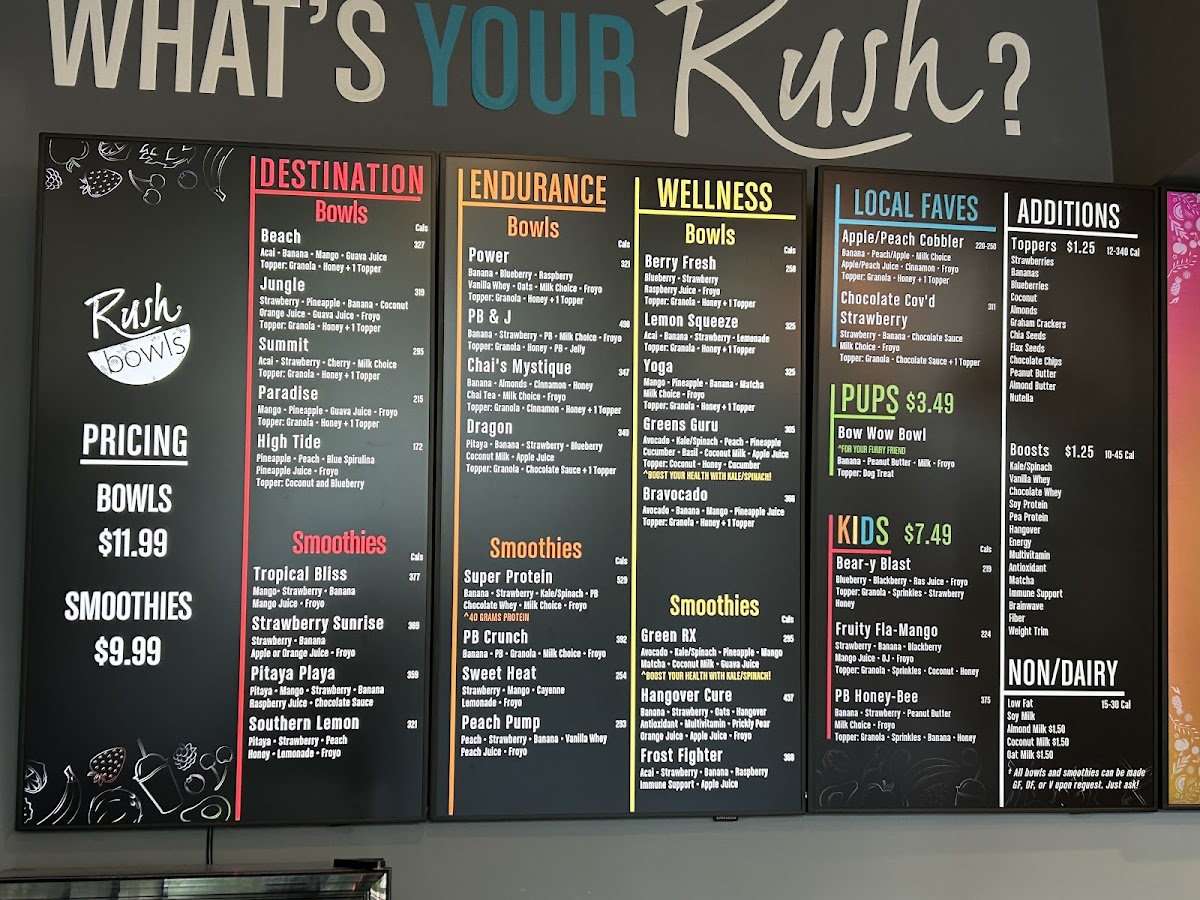 WHAT'S YOUR Rush?
Rush
bowls
PRICING
BOWLS
$11.99
SMOOTHIES
$9.99
DESTINATION
Bowls
Cals
Beach 327
Acai • Banana • Mango • Guava Juice
Topper: Granola • Honey + 1 Topper
Jungle 319
Strawberry • Pineapple • Banana • Coconut
Orange Juice • Guava Juice • Froyo
Topper: Granola • Honey + 1 Topper
Summit 295
Acai • Strawberry • Cherry • Milk Choice
Topper: Granola • Honey + 1 Topper
Paradise 215
Mango • Pineapple • Guava Juice • Froyo
Topper: Granola • Honey + 1 Topper
High Tide 172
Pineapple • Peach • Blue Spirulina
Pineapple Juice • Froyo
Topper: Coconut and Blueberry
Smoothies
Cals
Tropical Bliss 377
Mango• Strawberry • Banana
Mango Juice • Froyo
Strawberry Sunrise 369
Strawberry • Banana
Apple or Orange Juice • Froyo
Pitaya Playa 359
Pitaya • Mango • Strawberry • Banana
Raspberry Juice • Chocolate Sauce
Southern Lemon 321
Pitaya • Strawberry • Peach
Honey • Lemonade • Froyo
ENDURANCE
Bowls
Cals
Power 321
Banana • Blueberry • Raspberry
Vanilla Whey • Oats • Milk Choice • Froyo
Topper: Granola • Honey + 1 Topper
PB & J 498
Banana • Strawberry • PB • Milk Choice • Froyo
Topper: Granola • Honey • PB • Jelly
Chai's Mystique 347
Banana • Almonds • Cinnamon • Honey
Chai Tea • Milk Choice • Froyo
Topper: Granola • Cinnamon • Honey + 1 Topper
Dragon 340
Pitaya • Banana • Strawberry • Blueberry
Coconut Milk • Apple Juice
Topper: Granola • Chocolate Sauce + 1 Topper
Smoothies
Cals
Super Protein 529
Banana • Strawberry • Kale/Spinach • PB
Chocolate Whey • Milk Choice • Froyo
^40 GRAMS PROTEIN
PB Crunch 392
Banana • PB • Granola • Milk Choice • Froyo
Sweet Heat 254
Strawberry • Mango • Cayenne
Lemonade • Froyo
Peach Pump 293
Peach • Strawberry • Banana • Vanilla Whey
Peach Juice • Froyo
WELLNESS
Bowls
Cals
Berry Fresh 250
Blueberry • Strawberry
Raspberry Juice • Froyo
Topper: Granola • Honey + 1 Topper
Lemon Squeeze 325
Acai • Banana • Strawberry • Lemonade
Topper: Granola • Honey + 1 Topper
Yoga 325
Mango • Pineapple • Banana • Matcha
Milk Choice • Froyo
Topper: Granola • Honey + 1 Topper
Greens Guru 305
Avocado • Kale/Spinach • Peach • Pineapple
Cucumber • Basil • Coconut Milk • Apple Juice
Topper: Coconut • Honey • Cucumber
^BOOST YOUR HEALTH WITH KALE/SPINACH!
Bravocado 366
Avocado • Banana • Mango • Pineapple Juice
Topper: Granola • Honey + 1 Topper
Smoothies
Cals
Green RX 295
Avocado • Kale/Spinach • Pineapple • Mango
Matcha • Coconut Milk • Guava Juice
^BOOST YOUR HEALTH WITH KALE/SPINACH!
Hangover Cure 437
Banana • Strawberry • Oats • Hangover
Antioxidant • Multivitamin • Prickly Pear
Orange Juice • Apple Juice • Froyo
Frost Fighter 368
Acai • Strawberry • Banana • Raspberry
Immune Support • Apple Juice
LOCAL FAVES
Apple/Peach Cobbler 220-250
Banana • Peach/Apple • Milk Choice
Apple/Peach Juice • Cinnamon • Froyo
Topper: Granola • Honey + 1 Topper
Chocolate Cov'd 311
Strawberry
Strawberry • Banana • Chocolate Sauce
Milk Choice • Froyo
Topper: Granola • Chocolate Sauce + 1 Topper
PUPS $3.49
Bow Wow Bowl
^FOR YOUR FURRY FRIEND
Banana • Peanut Butter • Milk • Froyo
Topper: Dog Treat
KIDS $7.49
Cals
Bear-y Blast 219
Blueberry • Blackberry • Ras Juice • Froyo
Topper: Granola • Sprinkles • Strawberry
Honey
Fruity Fla-Mango 224
Strawberry • Banana • Blackberry
Mango Juice • OJ • Froyo
Topper: Granola • Sprinkles • Coconut • Honey
PB Honey-Bee 375
Banana • Strawberry • Peanut Butter
Milk Choice • Froyo
Topper: Granola • Sprinkles • Banana • Honey
ADDITIONS
Toppers $1.25 12-340 Cal
Strawberries
Bananas
Blueberries
Coconut
Almonds
Graham Crackers
Chia Seeds
Flax Seeds
Chocolate Chips
Peanut Butter
Almond Butter
Nutella
Boosts $1.25 10-45 Cal
Kale/Spinach
Vanilla Whey
Chocolate Whey
Soy Protein
Pea Protein
Hangover
Energy
Multivitamin
Antioxidant
Matcha
Immune Support
Brainwave
Fiber
Weight Trim
NON/DAIRY
Low Fat 15-30 Cal
Soy Milk
Almond Milk $1.50
Coconut Milk $1.50
Oat Milk $1.50
* All bowls and smoothies can be made
GF, DF, or V upon request. Just ask!